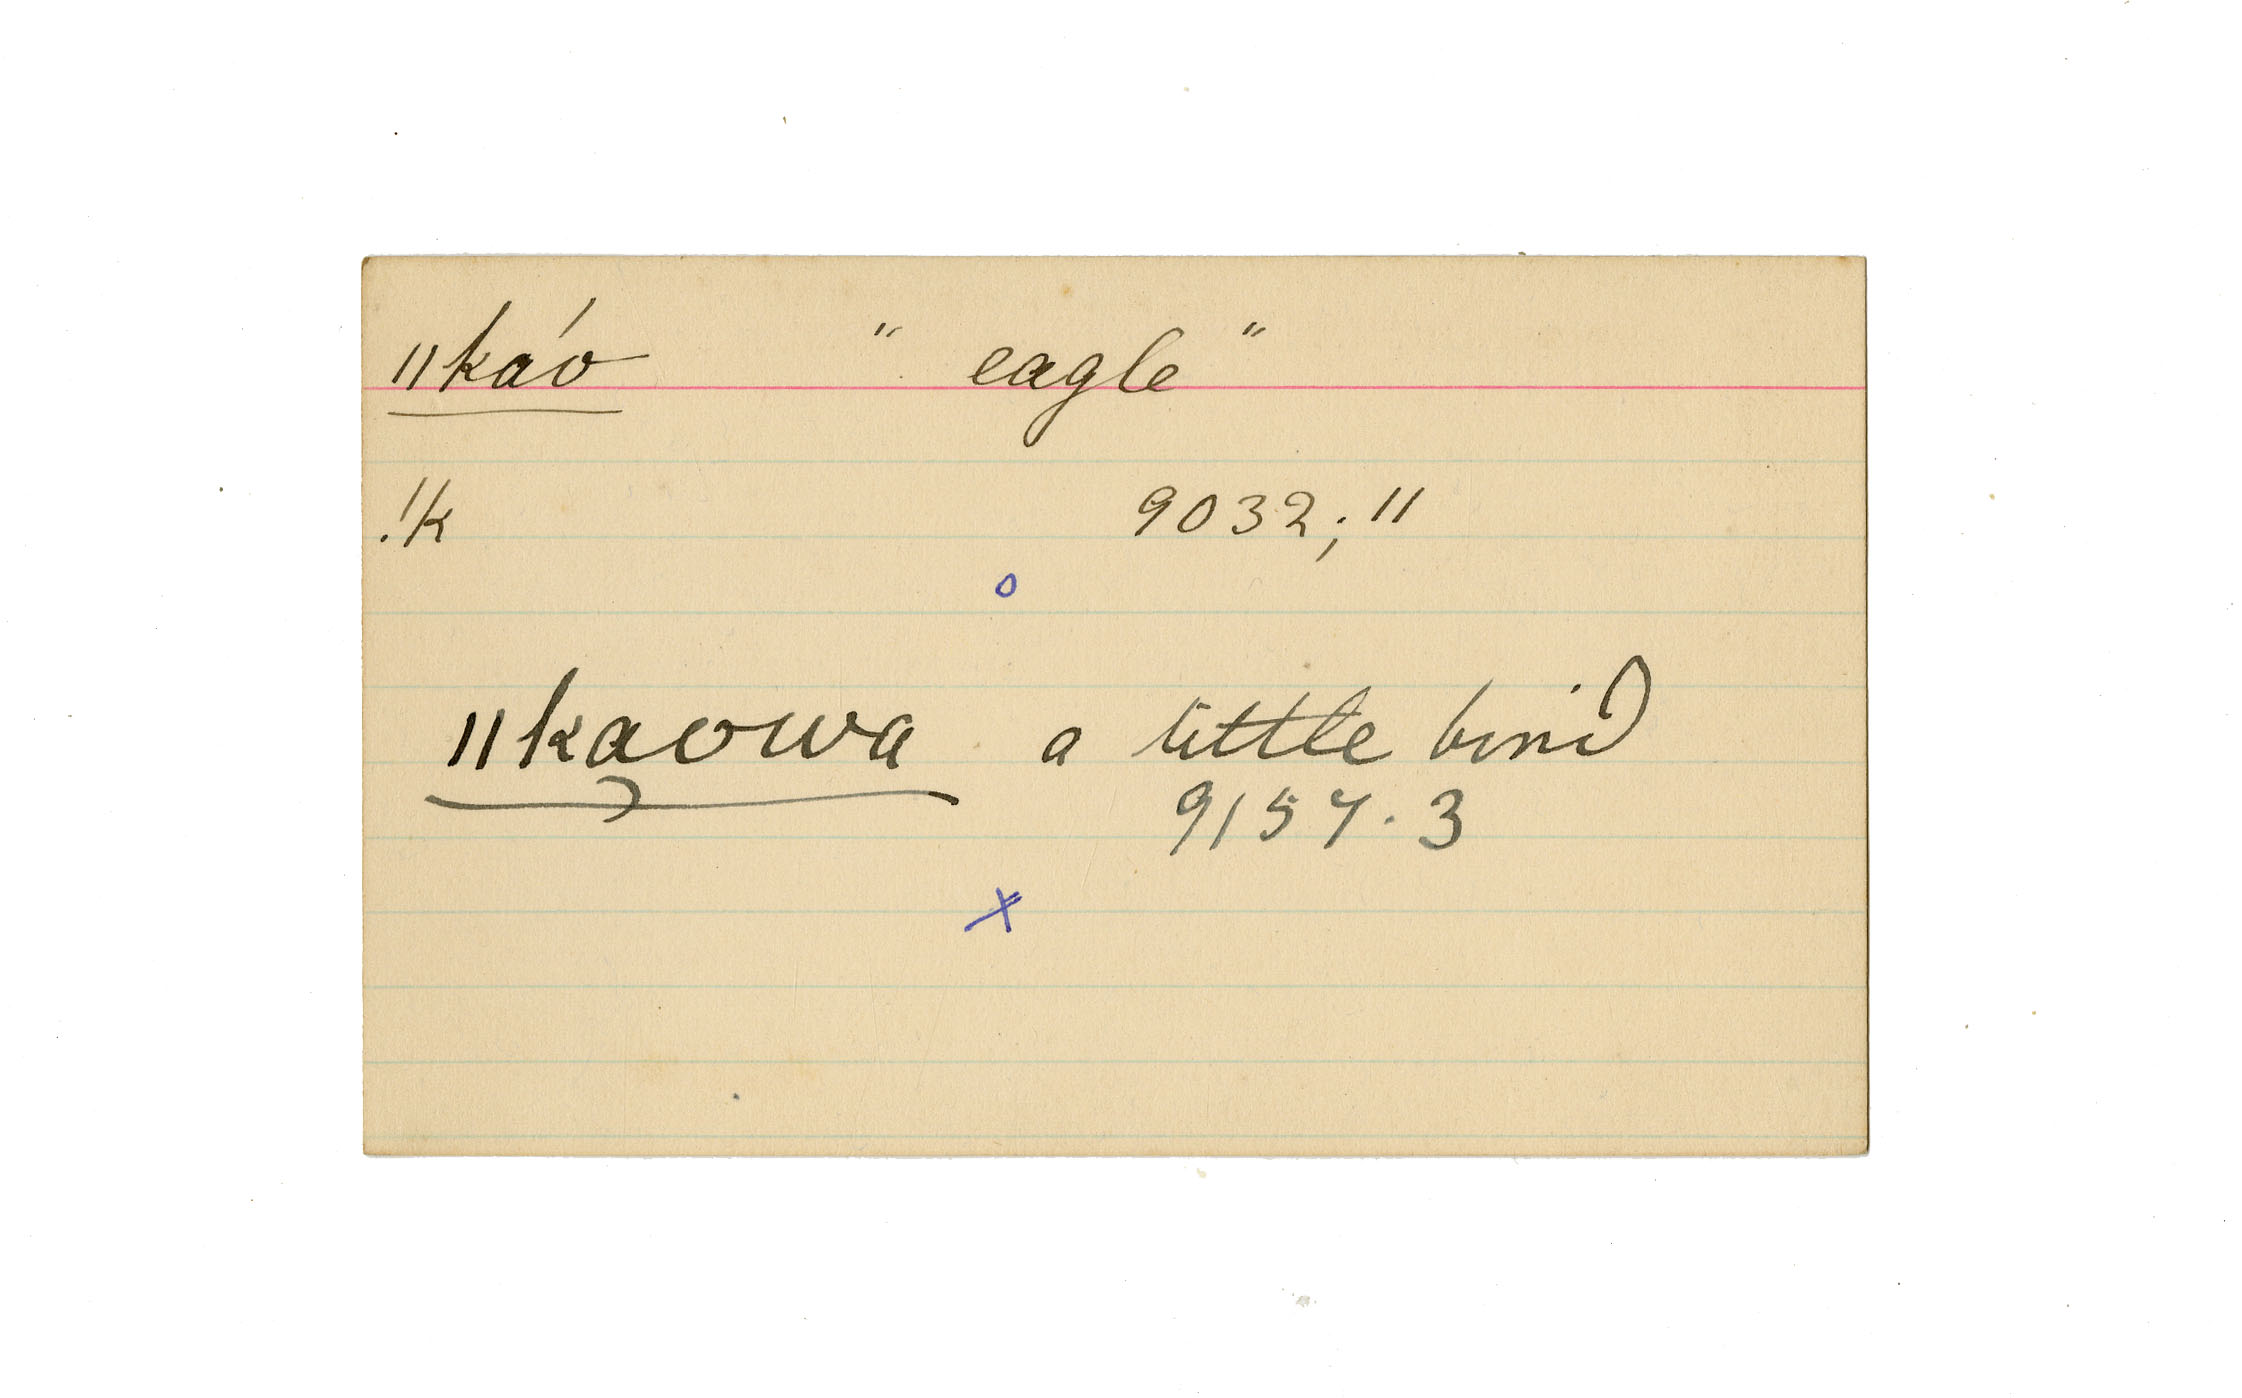 ǁkáo " eagle "
!k 9032; 11
o
ǁka̯owa a little bird
9157. 3
x